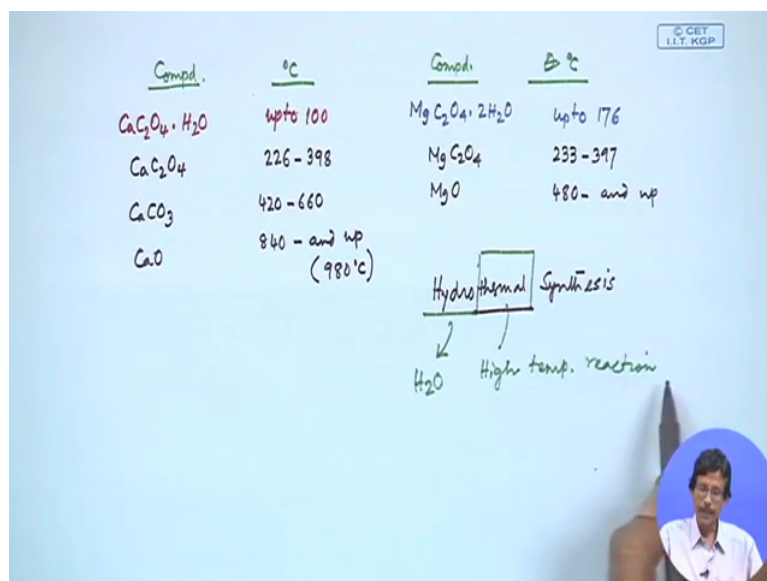 © CET
I.I.T. KGP
Compd. °C
CaC2O4·H2O upto 100
CaC2O4 226-398
CaCO3 420-660
CaO 840 - and up
(980°C)
Compd. °C
MgC2O4·2H2O upto 176
MgC2O4 233-397
MgO 480- and up
Hydrothermal Synthesis
H2O High temp. reaction